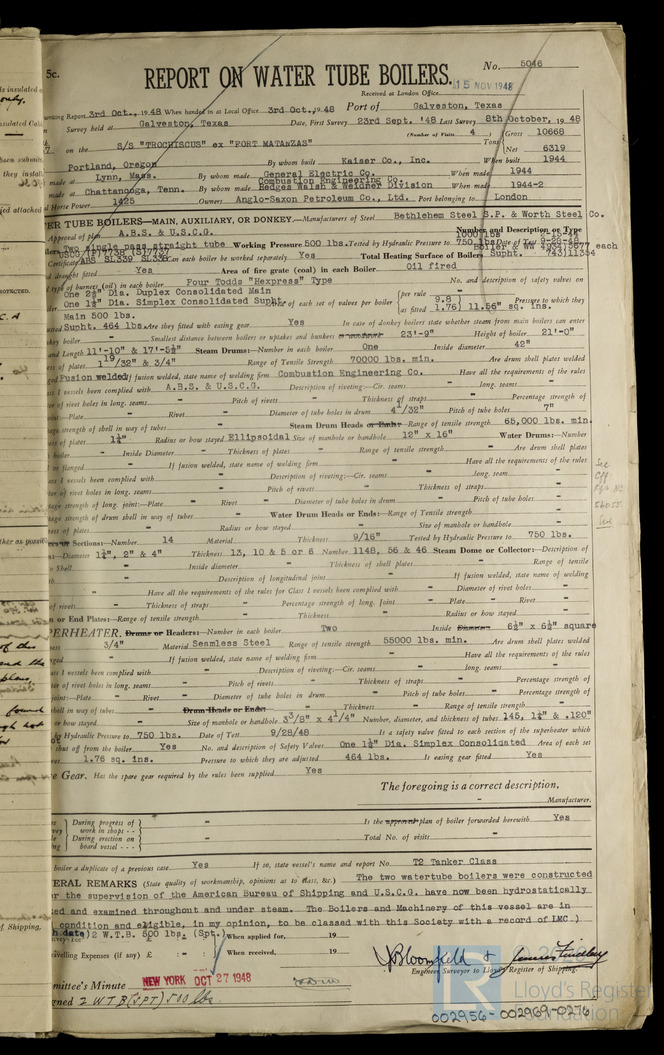 5c.
No. 5046
REPORT ON WATER TUBE BOILERS.
Received at London Office 15 NOV 1948
Report 3rd Oct., 1948 When handed in at Local Office 3rd Oct., 1948 Port of Galveston, Texas
Survey held at Galveston, Texas Date, First Survey 23rd Sept. '48 Last Survey 8th October, 1948
(Number of Visits 4) Gross 10668
on the S/S "TROCHISCUS" ex "FORT MATANZAS" Tons Net 6319
Portland, Oregon By whom built Kaiser Co., Inc. When built 1944
made at Lynn, Mass. By whom made General Electric Co. When made 1944
made at Chattanooga, Tenn. By whom made Combustion Engineering Co. Hedges Walsh & Weidner Division When made 1944-2
Horse Power 1425 Owners Anglo-Saxon Petroleum Co., Ltd. Port belonging to London
TER TUBE BOILERS—MAIN, AUXILIARY, OR DONKEY.—Manufacturers of Steel Bethlehem Steel S.P. & Worth Steel Co.
Approval of plan A.B.S. & U.S.C.G. Number and Description or Type
Two single pass straight tube Working Pressure 500 lbs. Tested by Hydraulic Pressure to 750 lbs. Date of Test 9-28-48
Certificate ABS SL339 SL338 Can each boiler be worked separately Yes Total Heating Surface of Boilers Supht. each
draught fitted Yes Area of fire grate (coal) in each Boiler Oil fired
type of burners (oil) in each boiler Four Todds "Hexpress" Type No. and description of safety valves on
One 2½" Dia. Duplex Consolidated Main
One 1½" Dia. Simplex Consolidated Supht. of each set of valves per boiler per rule as fitted 9.8 1.76 11.56" sq. ins. Pressure to which they
Main 500 lbs.
Supht. 464 lbs. Are they fitted with easing gear Yes In case of donkey boilers state whether steam from main boilers can enter
boiler - Smallest distance between boilers or uptakes and bunkers 23'-9" Height of boiler 21'-0"
and Length 11'-10" & 17'-5½" Steam Drums:—Number in each boiler One Inside diameter 42"
of plates 1 19/32" & 3/4" Range of Tensile Strength 70000 lbs. min. Are drum shell plates welded
Fusion welded If fusion welded, state name of welding firm Combustion Engineering Co. Have all the requirements of the rules
I vessels been complied with A.B.S. & U.S.C.G. Description of riveting:—Cir. seams - long. seams -
of rivet holes in long. seams - Pitch of rivets - Thickness of straps - Percentage strength of
Plate - Rivet - Diameter of tube holes in drum 4 1/32" Pitch of tube holes 7"
strength of shell in way of tubes - Steam Drum Heads or Ends: Range of tensile strength 65,000 lbs. min.
of plates 1¼" Radius or how stayed Ellipsoidal Size of manhole or handhole 12" x 16" Water Drums:—Number
boiler - Inside Diameter - Thickness of plates - Range of tensile strength - Are drum shell plates
or flanged - If fusion welded, state name of welding firm - Have all the requirements of the rules
I vessels been complied with - Description of riveting:—Cir. seams - long. seam -
of rivet holes in long. seams - Pitch of rivets - Thickness of straps -
strength of long. joint:—Plate - Rivet - Diameter of tube holes in drum - Pitch of tube holes -
strength of drum shell in way of tubes - Water Drum Heads or Ends:—Range of Tensile Strength -
of plates - Radius or how stayed - Size of manhole or handhole -
Sections:—Number 14 Material - Thickness 9/16" Tested by Hydraulic Pressure to 750 lbs.
Diameter 1¼", 2" & 4" Thickness 13, 10 & 5 or 6 Number 1148, 56 & 46 Steam Dome or Collector:—Description of
Shell - Inside diameter - Thickness of shell plates - Range of tensile
- Description of longitudinal joint - If fusion welded, state name of welding
- Have all the requirements of the rules for Class I vessels been complied with - Diameter of rivet holes -
of rivets - Thickness of straps - Percentage strength of long. Joint - Plate - Rivet -
or End Plates:—Range of tensile strength - Thickness - Radius or how stayed -
PERHEATER. Drums or Headers:—Number in each boiler Two Inside Diameter 6½" x 6½" square
3/4" Material Seamless Steel Range of tensile strength 55000 lbs. min. Are drum shell plates welded
If fusion welded, state name of welding firm - Have all the requirements of the rules
I vessels been complied with - Description of riveting:—Cir. seams - long. seams -
of rivet holes in long. seams - Pitch of rivets - Thickness of straps - Percentage strength of
joint:—Plate - Rivet - Diameter of tube holes in drum - Pitch of tube holes - Percentage strength of
shell in way of tubes - Drum Heads or Ends: Thickness - Range of tensile strength -
or how stayed - Size of manhole or handhole 3 3/8" x 4 1/4" Number, diameter, and thickness of tubes 145, 1¼" & .120"
by Hydraulic Pressure to 750 lbs. Date of Test 9/28/48 Is a safety valve fitted to each section of the superheater which
shut off from the boiler Yes No. and description of Safety Valves One 1½" Dia. Simplex Consolidated Area of each set
1.76 sq. ins. Pressure to which they are adjusted 464 lbs. Is easing gear fitted Yes
Gear. Has the spare gear required by the rules been supplied Yes
The foregoing is a correct description,
Manufacturer.
During progress of work in shops - - - Is the approved plan of boiler forwarded herewith Yes
During erection on board vessel - - - Total No. of visits -
boiler a duplicate of a previous case Yes If so, state vessel's name and report No. T2 Tanker Class
ERAL REMARKS (State quality of workmanship, opinions as to class, &c.) The two watertube boilers were constructed
the supervision of the American Bureau of Shipping and U.S.C.G. have now been hydrostatically
and examined throughout and under steam. The Boilers and Machinery of this vessel are in
condition and eligible, in my opinion, to be classed with this Society with a record of LMC )
date) 2 W.T.B. 500 lbs. (Spt.) When applied for, 19
Travelling Expenses (if any) £ : : When received, 19
J Bloomfield & James Findlay
Engineer Surveyor to Lloyd's Register of Shipping.
mittee's Minute NEW YORK OCT 27 1948
2 W T B (SPT) 500 lb
Lloyd's Register
Foundation
002956-002969-0276